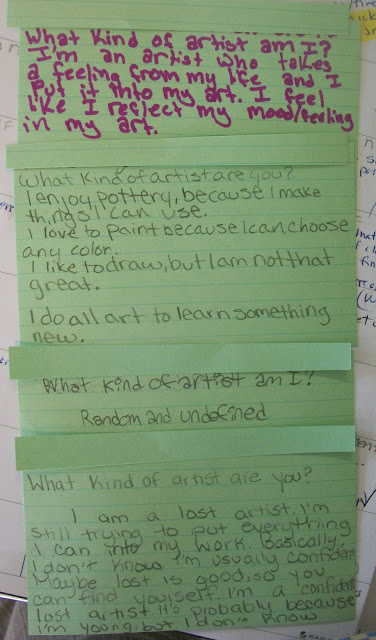 What Kind of artist am I?
I'm an artist who takes
a feeling from my life and I
put it into my art. I feel
like I reflect my mood/feeling
in my art.
What Kind of artist are you?
I enjoy pottery, because I make
things I can use.
I love to paint because I can choose
any color.
I like to draw, but I am not that
great.
I do all art to learn something
new.
What kind of artist am I?
Random and undefined
What kind of artist are you?
I am a lost artist. I'm
still trying to put everything
I can into my work. Basically,
I don't know. I'm usually confident
Maybe lost is good, so you
can find yourself. I'm a confident
lost artist. It's probably because
I'm young, but I don't know